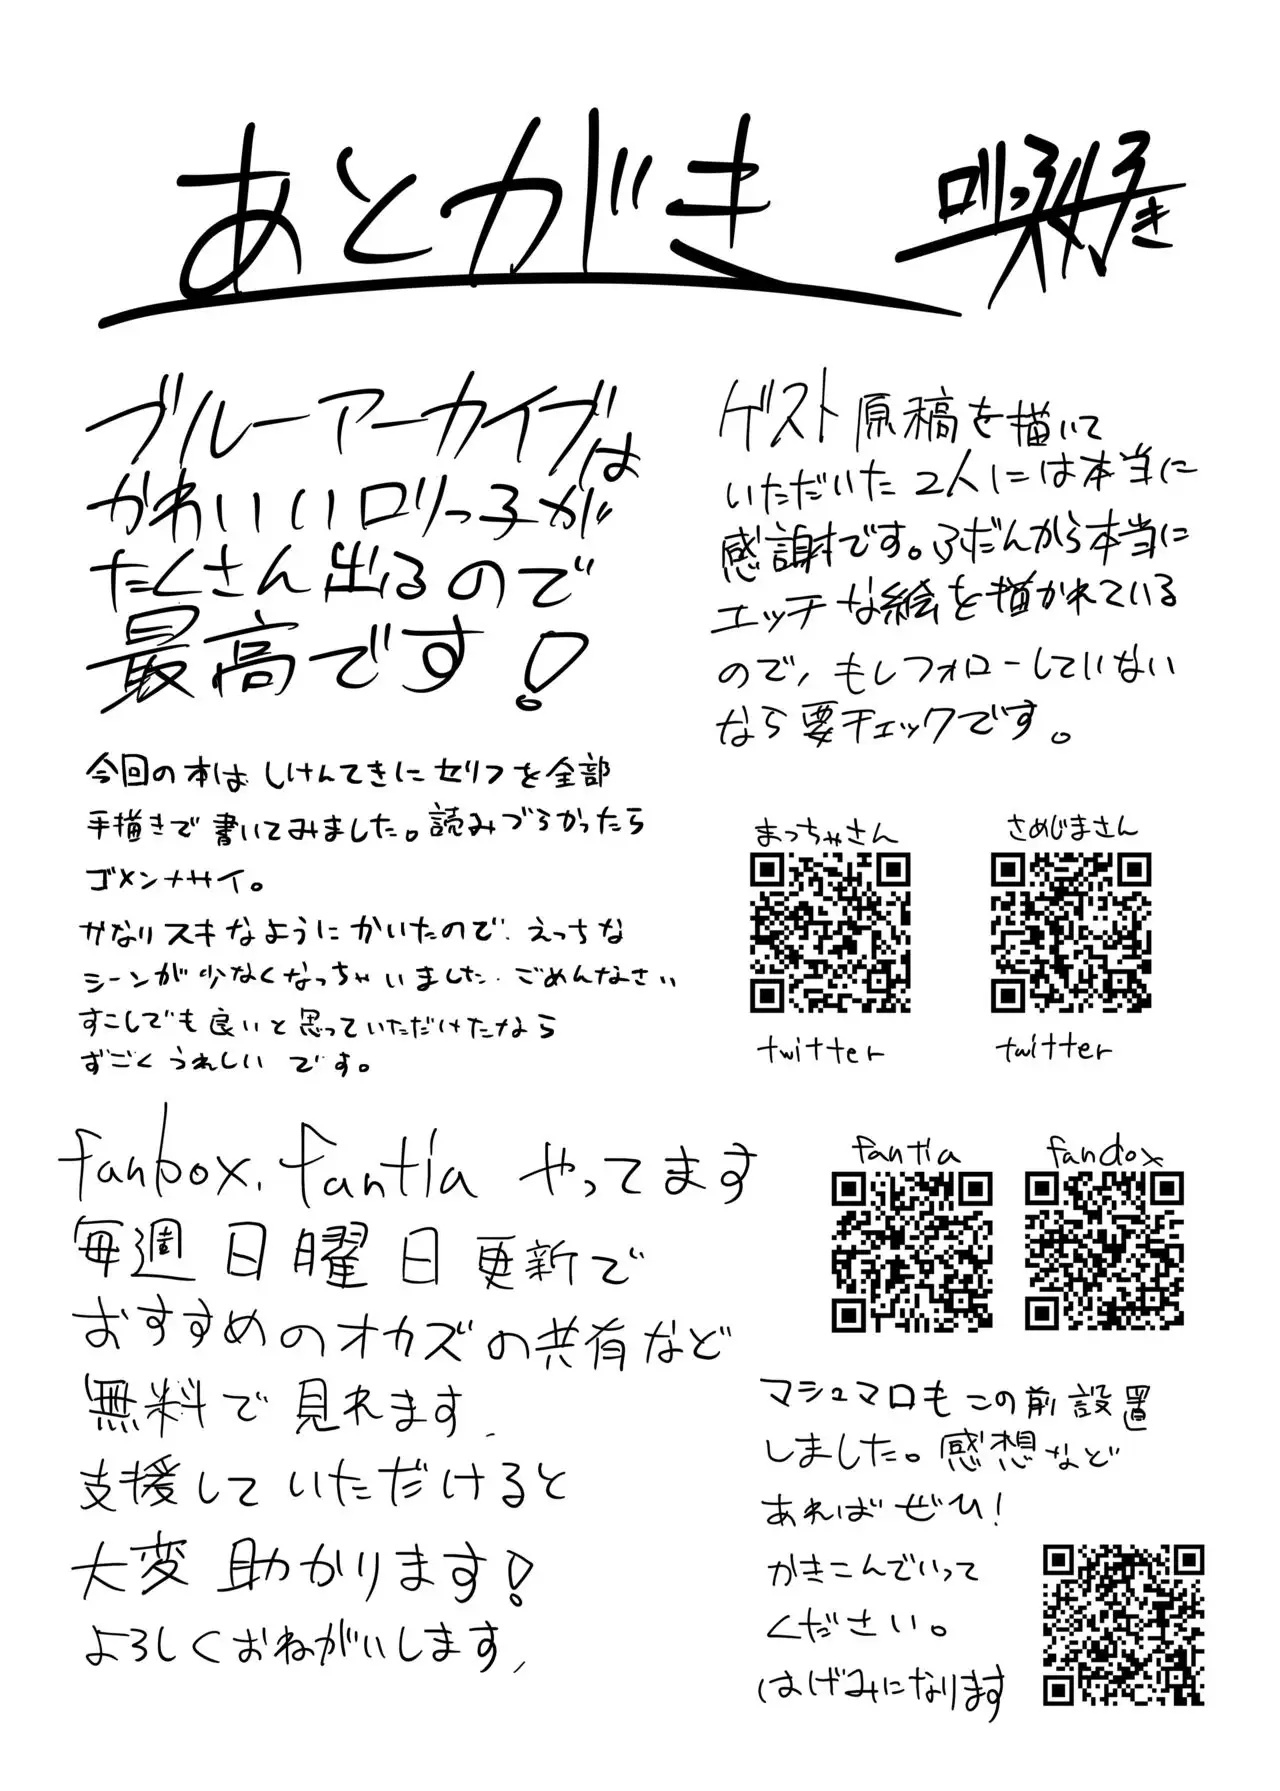 あとがき
ブルーアーカイブは
かわいいロリっ子が
たくさん出るので
最高です!
今回の本は しけんてきに セリフを全部
手描きで 書いてみました。読みづらかったら
ゴメンナサイ。
かなりスキなようにかいたので、えっちな
シーンが少なくなっちゃいました、ごめんなさい
すこしでも良いと思っていただけたなら
すごくうれしいです。
ゲスト原稿を描いて
いただいた2人には本当に
感謝です。ふだんから本当に
エッチな絵を描かれている
ので、もしフォローしていない
なら要チェックです。
まっちゃさん
さめじまさん
twitter
twitter
fanbox、fantia やってます
毎週日曜日更新で
おすすめのオカズの共有など
無料で見れます、
支援していただけると
大変助かります!
よろしくおねがいします、
fantia
fanbox
マシュマロもこの前設置
しました。感想など
あればぜひ!
かきこんでいって
ください。
はげみになります